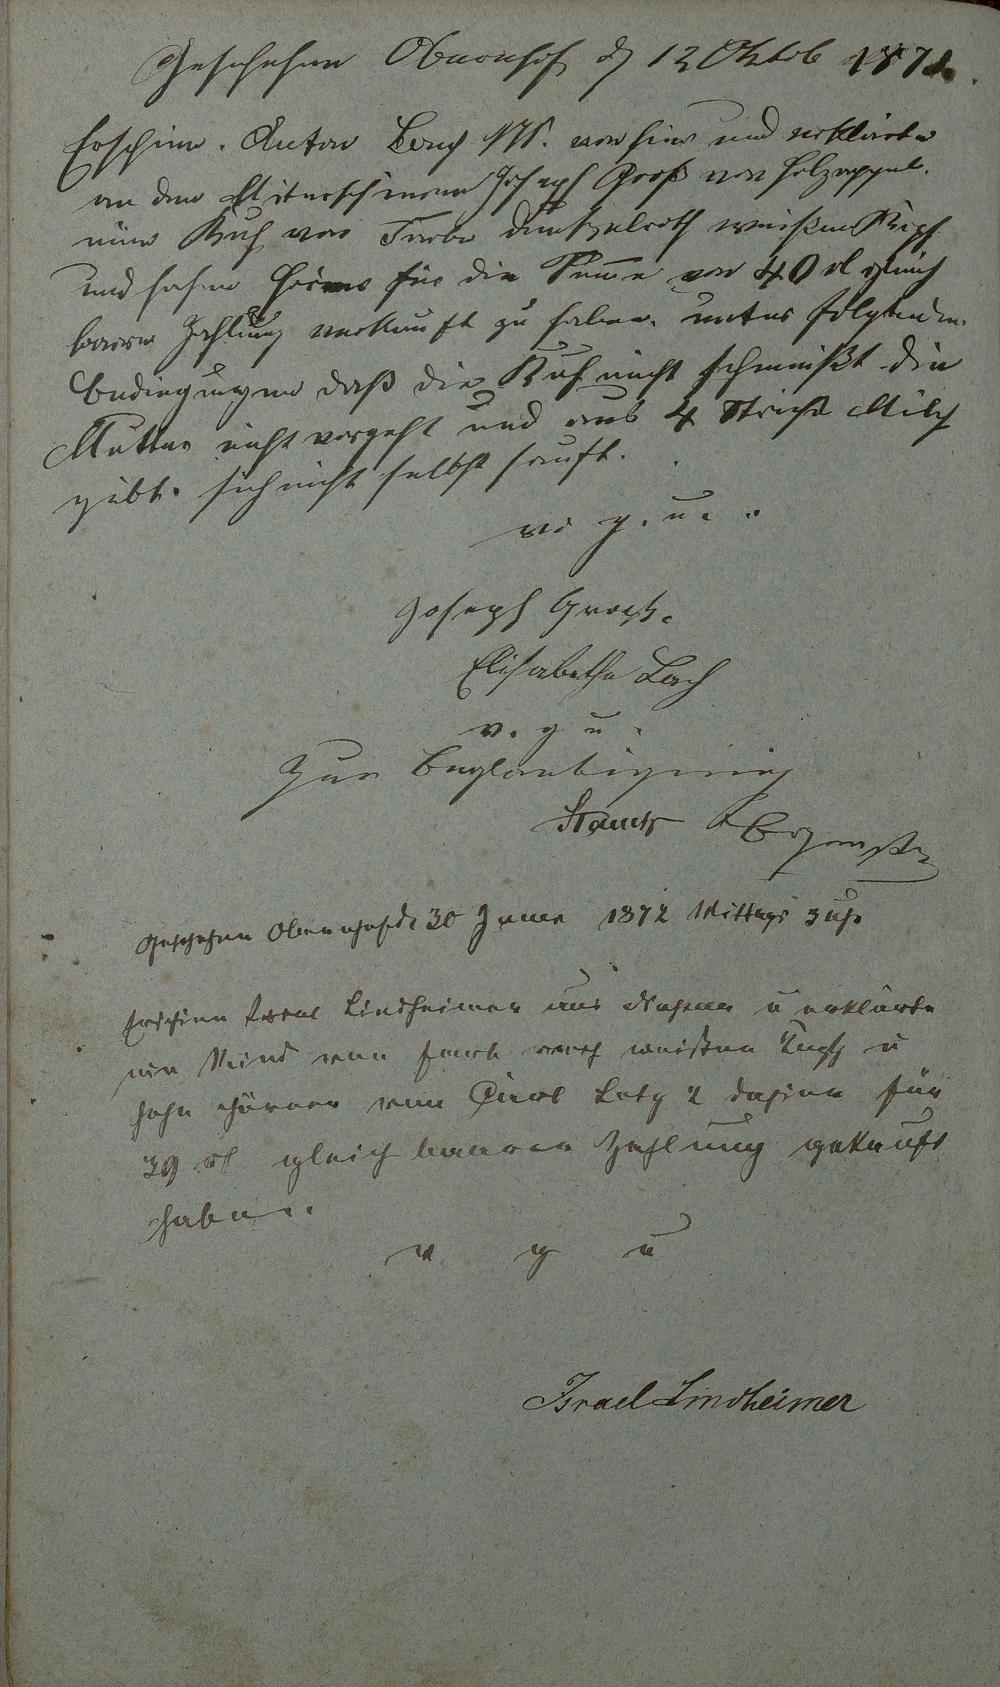 Geschehen Obernhof d 12 Oktob 1871.
Erschien. Anton Bach von hier und erklärte
an den Miterschienenen Joseph Groß von Holzappel.
eine Kuh von Farbe dunkelroth weißen Kopf
und hohen Hörner für die Summe von 40 rl gleich
baare Zahlung verkauft zu haben. unter folgenden
Bedingungen daß die Kuh nicht schmeißt die
Mutter nicht vorgeht und aus 4 Striche Milch
gibt. sich nicht selbst sauft.
v. g. u.
Joseph Groß.
Elisabetha Bach
v. g u.
Zur Beglaubigung
Geschehen Obernhof d 30 Januar 1872 Mittags 3 uhr
Erschien Israel Lindheimer aus Nassau u erklärte
ein Rind von Farb roth weißen Kopf u
hohe Hörner vom Carl Lotz 2 dahier für
39 rl gleich baaren Zahlung gekauft
haben.
v g u
Israel Lindheimer